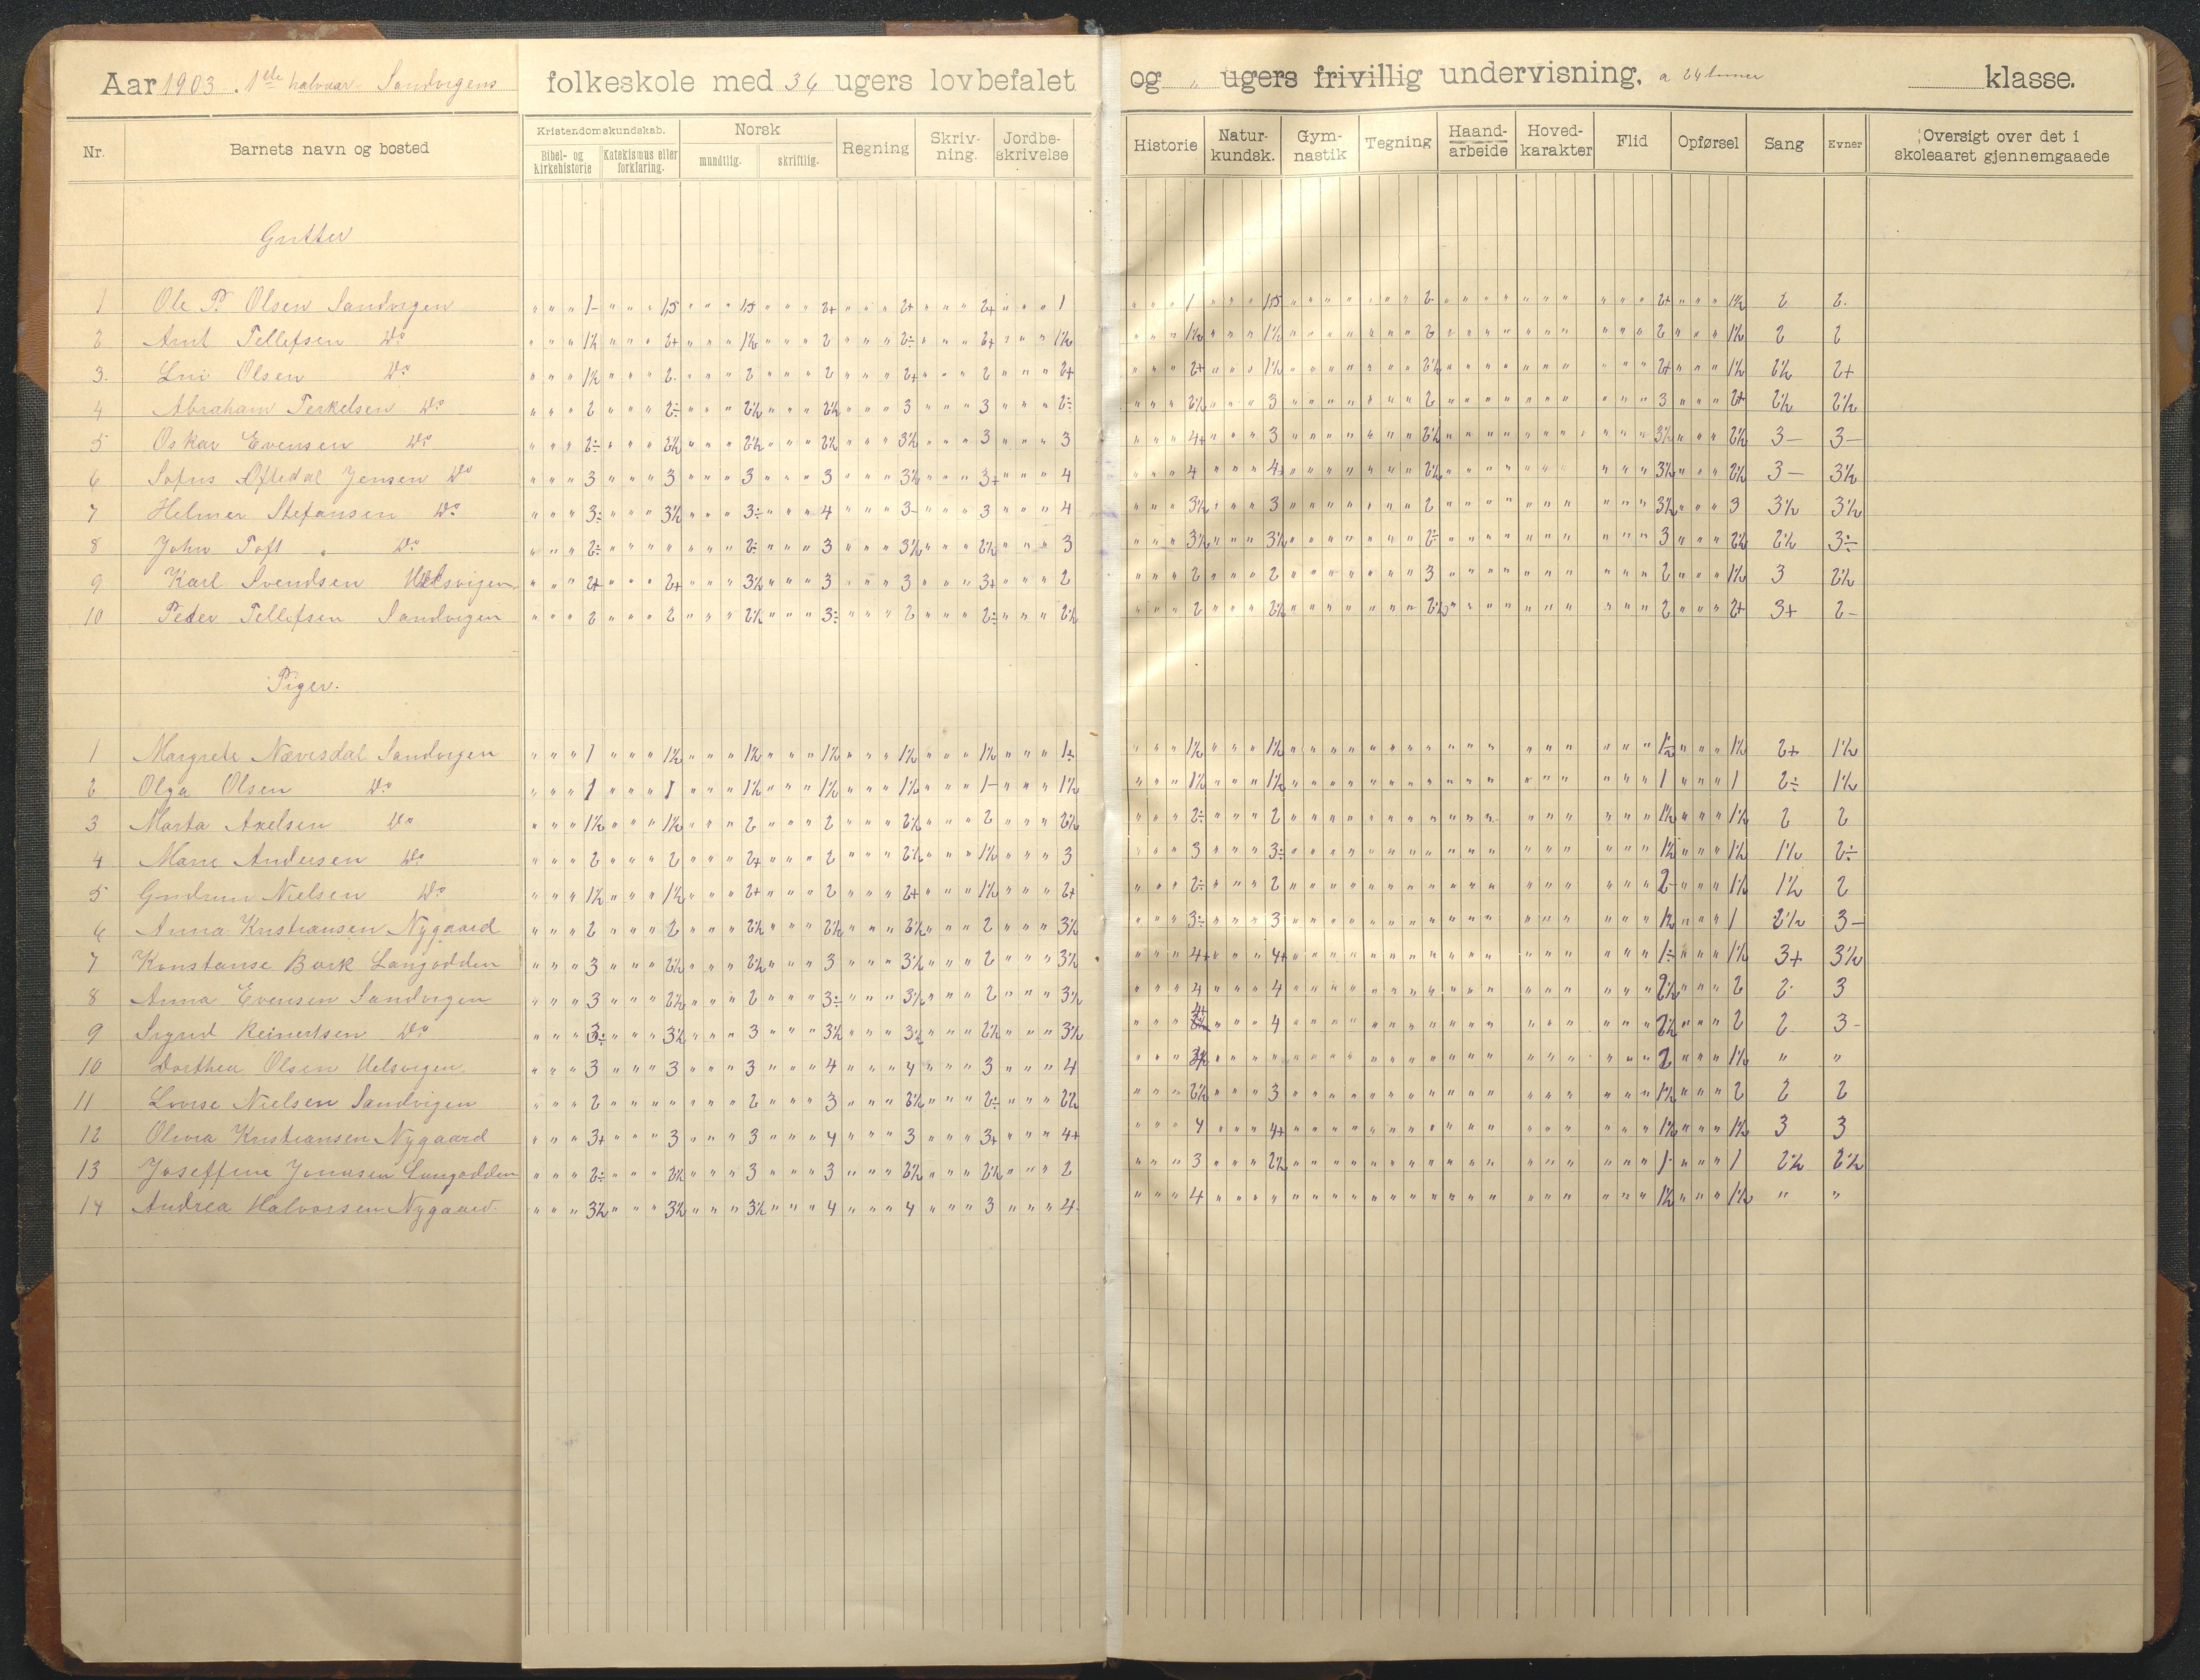 Aar 1903. 1ste halvaar Sandvigens folkeskole med 36 ugers lovbefalet og " ugers frivillig undervisning. a 24 timer klasse.
Nr. Barnets navn og bosted Kristendomskundskab. Bibel- og kirkehistorie Katekismus eller forklaring. Norsk mundtlig. skriftlig. Regning Skriv-ning. Jordbe-skrivelse Historie Natur-kundsk. Gym-nastik Tegning Haand-arbeide Hoved-karakter Flid Opførsel Sang Evner Oversigt over det i skoleaaret gjennemgaaede
Gutter
1 Ole P. Olsen Sandvigen 1- 1,5 1,5 2+ 2+ 2+ 1 1 1,5 2 2+ 1½ 2 2
2 Arnt Tellefsen Do 1½ 2+ 1½ 2 2÷ 2+ 1½ 1½ 1½ 2 2 1½ 2 2
3. Olsen Do 1½ 2 2 2 2+ 2 2+ 2+ 1½ 2½ 2+ 1½ 2½ 2+
4 Abraham Terkelsen Do 2 2÷ 2½ 2½ 3 3 2÷ 2½ 3 2 3 2+ 2½ 2½
5 Oskar Evensen Do 2÷ 2½ 2½ 2½ 3½ 3 3 4+ 3 2½ 3½ 2½ 3- 3-
6 Sofus Oftedal Jensen Do 3 3 3 3 3½ 3+ 4 4 4+ 2½ 3½ 2½ 3- 3½
7 Helmer Stefansen Do 3÷ 3½ 3÷ 4 3- 3 4 3½ 3 2 3½ 3 3½ 3½
8 John Toft Do 2÷ " 2÷ 3 3½ 2½ 3 3½ 3½ 2÷ 3 2½ 2½ 3÷
9 Karl Svendsen 2+ 2+ 3½ 3 3 3+ 2 2 2 3 2 1½ 3 2½
10 Peder Tellefsen Sandvigen 2 2 2½ 3÷ 2 2÷ 2½ 2 2½ 2½ 2 2+ 3+ 2-
Piger.
1 Margrete Nævisdal Sandvigen 1 1½ 1½ 1½ 1½ 1½ 1÷ 1½ 1½ 1½ 1½ 2+ 1½
2 Olga Olsen Do 1 1 1½ 1½ 1½ 1- 1½ 1½ 1½ 1 1 2÷ 1½
3 Marta Axelsen Do 1½ 1½ 2 2 2½ 2 2½ 2÷ 2 1½ 1½ 2 2
4 Marie Andersen Do 2 2 2+ 2 2½ 1½ 3 3 3÷ 1½ 1½ 1½ 2÷
5 Gudrun Nielsen Do 1½ 1½ 2+ 2 2+ 1½ 2+ 2÷ 2 2- 1½ 1½ 2
6 Anna Kristiansen Nygaard 2 2 2½ 2½ 2½ 2 3½ 3÷ 3 1½ 1 2½ 3-
7 Konstanse Bork Langodden 3 2½ 2½ 3 3½ 2 3½ 4+ 4+ 1÷ 1½ 3+ 3½
8 Anna Evensen Sandvigen 3 2½ 2 3÷ 3½ 2 3½ 4 4 2½ 2 2 3
9 Sigrid Reinertsen Do 3÷ 3½ 3 3½ 3½ 2½ 3½ 4+ 4 2½ 2 2 3-
10 Dorthea Olsen 3 3 3 4 4 3 4 3½ " 2 1½ " "
11 Lovise Nielsen Sandvigen 2 " 2 3 2½ 2÷ 2½ 2½ 3 1½ 2 2 2
12 Olivia Kristiansen Nygaard 3+ 3 3 4 3 3+ 4+ 4 4+ 1½ 1½ 3 3
13 Joseffine Jonnsen Langodden 2÷ 2½ 3 3 2½ 2½ 2 3 2½ 1 1 2½ 2½
14 Andrea Halvorsen Nygaard 3½ 3½ 3½ 4 4 3 4 4 " 1½ 1½ " "